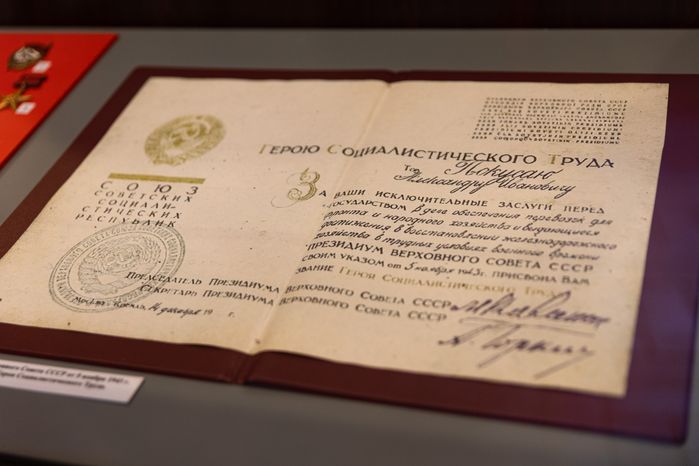 Герою Социалистического Труда
Тов. Покусаю
Александру Ивановичу
За ваши исключительные заслуги перед
государством в деле обеспечения перевозок для
фронта и народного хозяйства и выдающиеся
достижения в восстановлении железнодорожного
хозяйства в трудных условиях военного времени
Президиум Верховного Совета СССР
своим указом от 5 ноября 1943 г. присвоил Вам
звание Героя Социалистического Труда
СОЮЗ
СОВЕТСКИХ
СОЦИАЛИ-
СТИЧЕСКИХ
РЕСПУБЛИК
Председатель Президиума Верховного Совета СССР
Секретарь Президиума Верховного Совета СССР
Москва, Кремль, декабря 19 г.
Совета СССР от 5 ноября 1943 г.
Героя Социалистического Труда